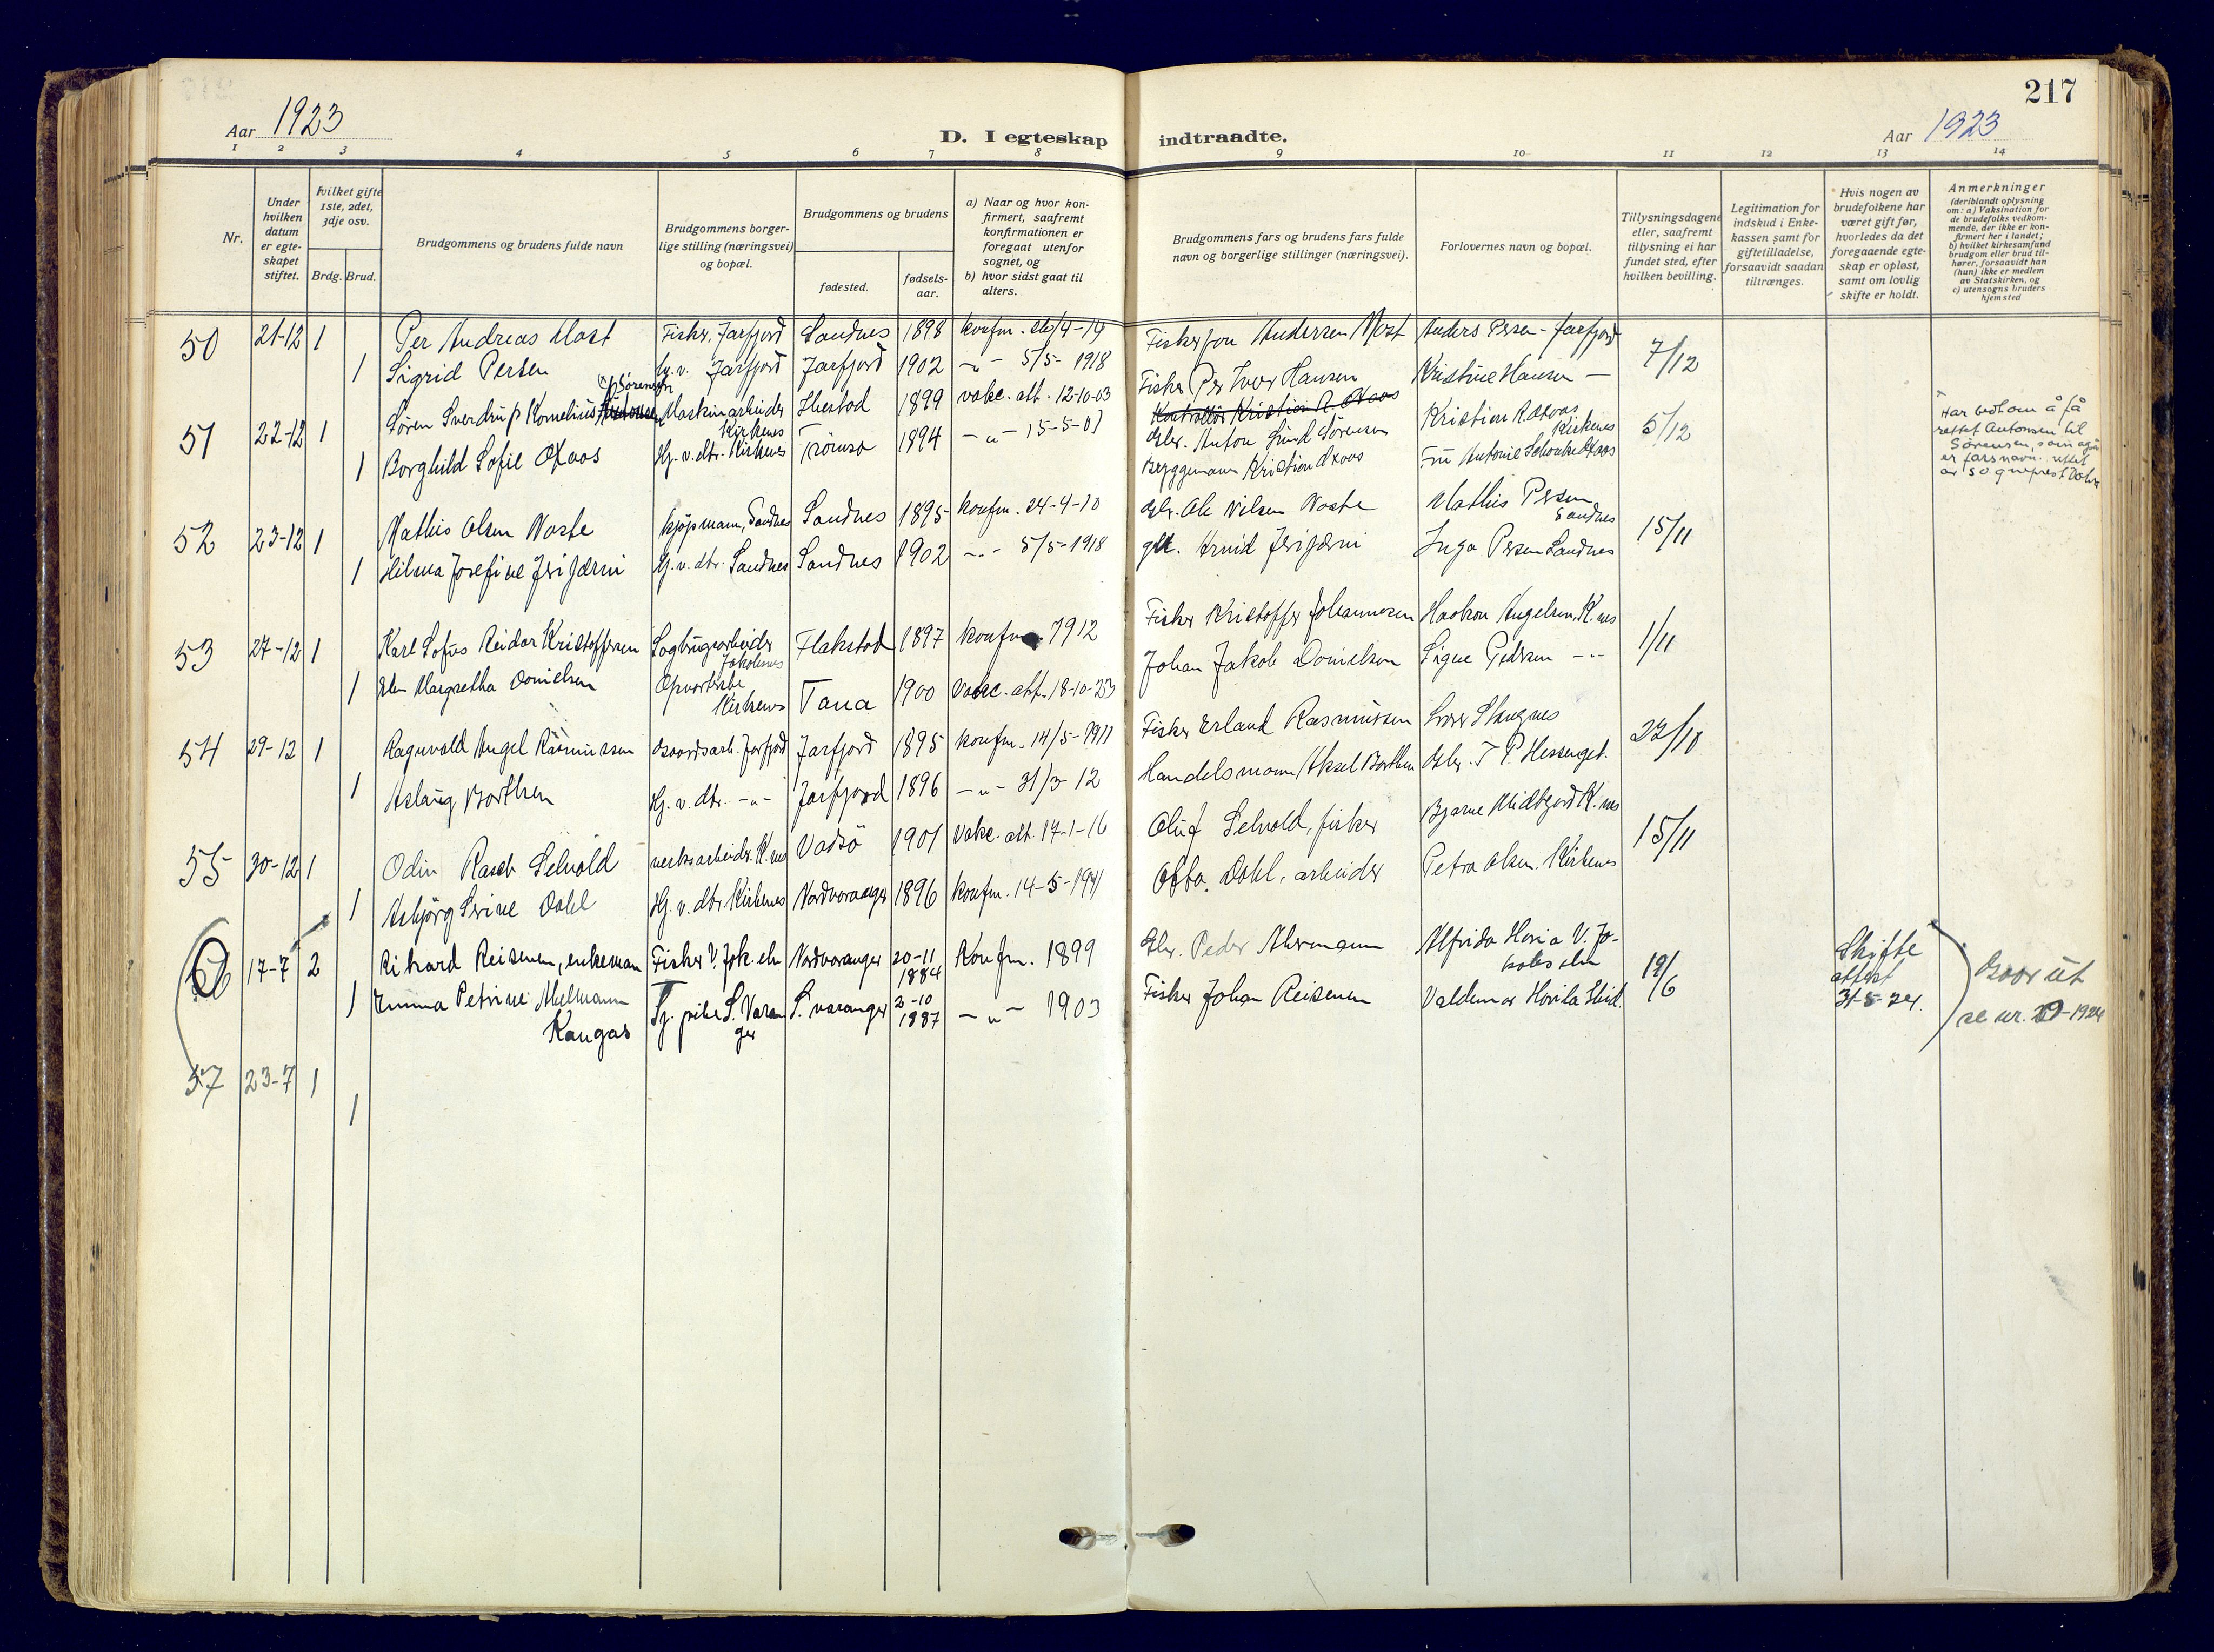 217
Aar 1923
D. I egteskap indtraadte.
Aar 1923
1 2 3 4 5 6 7 8 9 10 11 12 13 14
Nr.
Under hvilken datum er egteskapet stiftet.
Hvilket gifte 1ste, 2det, 3dje osv.
Brdg. Brud.
Brudgommens og brudens fulde navn
Brudgommens borgerlige stilling (næringsvei) og bopæl.
Brudgommens og brudens
fødested.
fødselsaar.
a) Naar og hvor konfirmert, saafremt konfirmationen er foregaat utenfor sognet, og
b) hvor sidst gaat til alters.
Brudgommens fars og brudens fars fulde navn og borgerlige stillinger (næringsvei).
Forlovernes navn og bopæl.
Tillysningsdagene eller, saafremt tillysning ei har fundet sted, efter hvilken bevilling.
Legitimation for indskud i Enkekassen samt for giftetilladelse, forsaavidt saadan tiltrænges.
Hvis nogen av brudefolkene har været gift før, hvorledes da det foregaaende egteskap er opløst, samt om lovlig skifte er holdt.
Anmerkninger (deriblandt oplysning om: a) Vaksination for de brudefolks vedkommende, der ikke er konfirmert her i landet; b) hvilket kirkesamfund brudgom eller brud tilhører, forsaavidt han (hun) ikke er medlem av Statskirken, og c) utensogns bruders hjemsted
50 21-12 1 Per Andreas Mast Fisker, Jarfjord Sandnes 1898 konfm. Fisker Jon Andersen Mast Anders Persen - Jarfjord 7/12
1 Sigrid Persen Jarfjord Jarfjord 1902 -"- 5/5-1918 Fisker Per Iver Hansen Kristine Hansen -
51 22-12 1 Søren Sverdrup Kornelius Antonsen Sørensen Maskinarbeider Kirkenes Ibestad 1899 vakc. att. 12-10-03 Kontrollør Kristian R. Oxaas Gbr. Anton Lund Sørensen Kristian R. Oxaas Kirkenes 5/12
1 Borghild Sofie Oxaas Hj. v. dtr. Kirkenes Tromsø 1894 -"- 15-5-01 Byggmann Kristian Oxaas Fru Antonie Schonhe Oxaas
Har bedt om å få
rettet Antonsen til
Sørensen, som også
er farsnavn. rettet
av sogneprest
52 23-12 1 Mathis Olsen Noste kjøpmann, Sandnes Sandnes 1895 konfm. 24-4-10 Gbr. Ole Nilsen Noste Mathis Persen Sandnes 15/11
1 Hilma Josefine Jerijærvi Hj. v. dtr. Sandnes Sandnes 1902 -"- 5/5-1918 Arvid Jerijærvi Inga Persen Sandnes
53 27-12 1 Karl Sofus Reidar Kristoffersen Sagbrugsarbeider Jakobsnes Flakstad 1897 konfm. 1912 Fisker Kristoffer Johannesen Haakon Angelsen, K.nes 1/11
1 Margretha Danielsen Opvarterske Kirkenes Tana 1900 Vakc. att. 18-10-23 Johan Jakob Danielsen Signe Pedersen -"-
54 29-12 1 Ragnvald Angel Rasmussen Gaardsarb. Jarfjord Jarfjord 1895 konfm. 14/5-1911 Fisker Erland Rasmussen Sverre Stangnes 22/10
1 Aslaug Barthen Hj. v. dtr. -"- Jarfjord 1896 -"- 31/3-12 Handelsmann Aksel Barthen Gbr. T P. Hessenget.
55 30-12 1 Odin Rasch Selvold verksarbeider K.nes Vadsö 1901 Vakc. att. 17-1-16 Oluf Selvold, fisker Bjarne Midtgård K.nes 15/11
1 Asbjørg Serine Dahl Hj. v. dtr. Kirkenes Nordvaranger 1896 konfm. 14-5-1911 Otto. Dahl, arbeider Petra Olsen. Kirkenes
56 17-7 2 Rikard Reisenen, enkeman Fisker V. Jak. elv Nordvaranger 20-11 1884 Konfm. 1899 Gbr. Peder Alermann Alfrida Havia V. Jakobselv 19/6 Skifte attest 31-5-24. Gaar ut se nr. 20-1924
1 Emma Petrine Mellmann Kangas Tj. pike S. Varanger S. varanger 2-10 1887 -"- 1903 Fisker Johan Reisenen Valdemar Havila Skid.
57 23-7 1
1